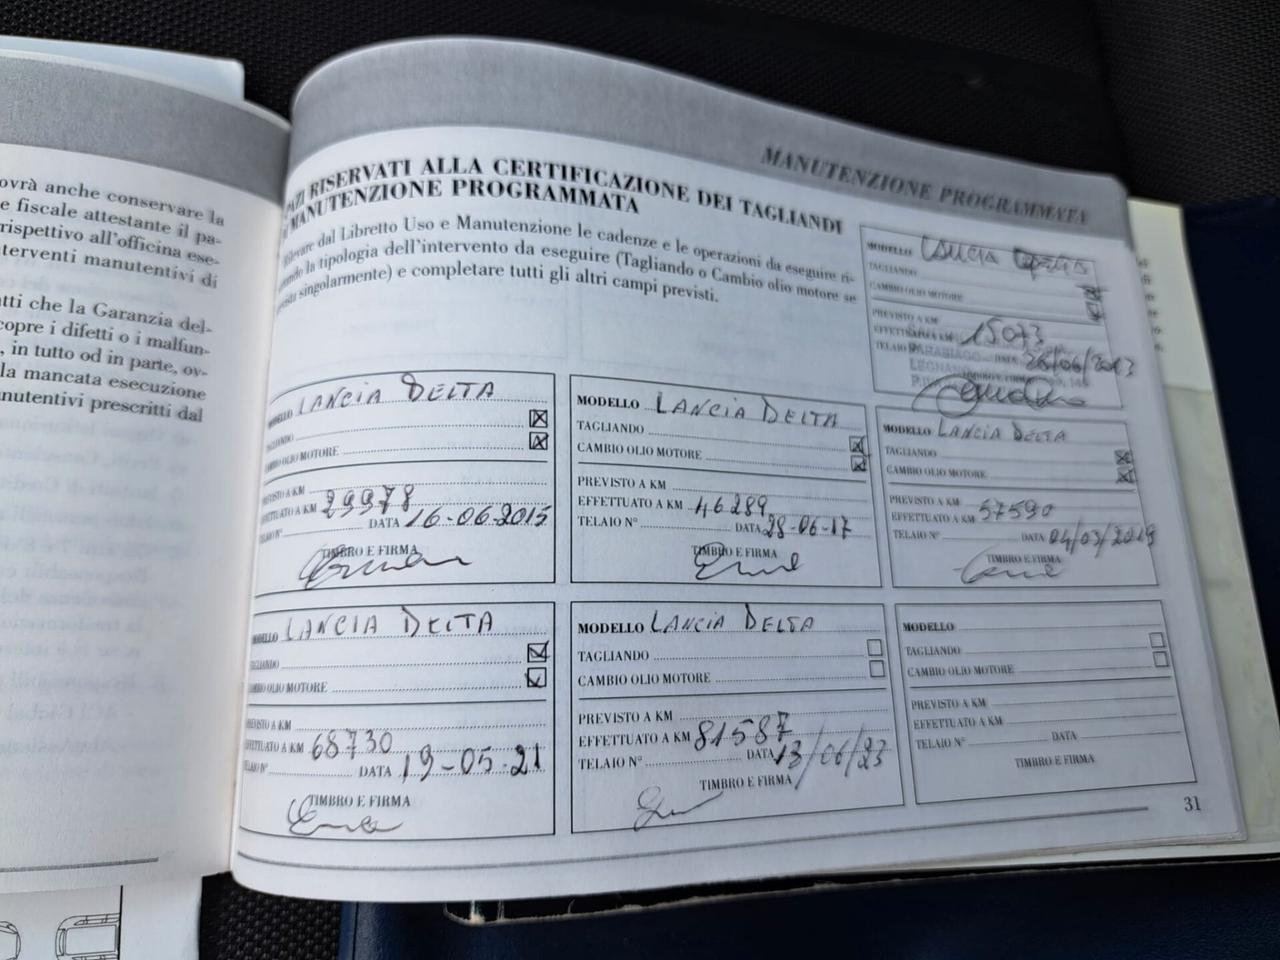 ovrà anche conservare la
e fiscale attestante il pa-
rispettivo all'officina ese-
nterventi manutentivi di
atti che la Garanzia del-
copre i difetti o i malfun-
, in tutto od in parte, ov-
la mancata esecuzione
nutentivi prescritti dal
MANUTENZIONE PROGRAMMATA
RISERVATI ALLA CERTIFICAZIONE DEI TAGLIANDI
MANUTENZIONE PROGRAMMATA
dal Libretto Uso e Manutenzione le cadenze e le operazioni da eseguire ri-
la tipologia dell'intervento da eseguire (Tagliando o Cambio olio motore se
singolarmente) e completare tutti gli altri campi previsti.
MODELLO LANCIA
TAGLIANDO
CAMBIO OLIO MOTORE
PREVISTO A KM
EFFETTUATO A KM 15073
TELAIO N° DATA 26/06/2013
PARABIAGO
LEGNANO
MODELLO LANCIA DELTA
TAGLIANDO
CAMBIO OLIO MOTORE
PREVISTO A KM
EFFETTUATO A KM 29978
N° DATA 16-06.2015
TIMBRO E FIRMA
MODELLO LANCIA DELTA
TAGLIANDO
CAMBIO OLIO MOTORE
PREVISTO A KM
EFFETTUATO A KM 46289
TELAIO N° DATA 28-06-17
TIMBRO E FIRMA
MODELLO LANCIA DELTA
TAGLIANDO
CAMBIO OLIO MOTORE
PREVISTO A KM
EFFETTUATO A KM 57590
TELAIO N° DATA 04/03/2019
TIMBRO E FIRMA
MODELLO LANCIA DELTA
TAGLIANDO
CAMBIO OLIO MOTORE
PREVISTO A KM
EFFETTUATO A KM 68730
TELAIO N° DATA 19-05-21
TIMBRO E FIRMA
MODELLO LANCIA DELTA
TAGLIANDO
CAMBIO OLIO MOTORE
PREVISTO A KM
EFFETTUATO A KM 81587
TELAIO N° DATA 13/06/23
TIMBRO E FIRMA
MODELLO
TAGLIANDO
CAMBIO OLIO MOTORE
PREVISTO A KM
EFFETTUATO A KM
TELAIO N° DATA
TIMBRO E FIRMA
31